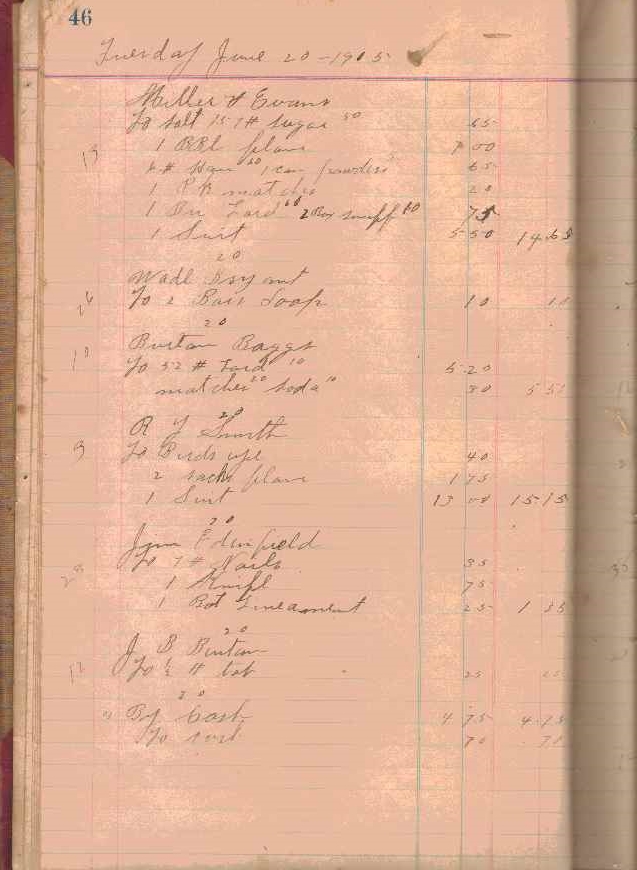 46
Tuesday June 20-1905
Miller & Evans
To Salt 15 7# sugar 50 65
13 1 BBl flour 7 00
4# Ham 60 1 can powders 5 65
1 PK matches 20
1 Lard 60 2 Box snuff 10 75
1 Suit 5 50 14.65
20
Wade Bryant
26 To 2 Bars Soap 10 10
20
Burton Baggs
10 To 52# Lard 10 5 20
matches 20 soda 10 30 5 50
20
R Y Smith
9 To Birds eye 40
2 sacks flour 1 75
1 Suit 13 00 15 15
20
Jim Edenfield
To 7# Nails 35
28 1 Knife 75
1 Bot Lineament 25 1 35
20
J B Burton
12 To ½# tob 25 25
20
" By Cash 4 75 4 75
To 70 70